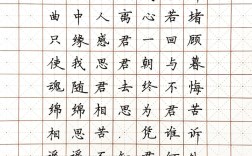 曲中人离心若堵
只缘感君一回顾
使我思君朝与暮
魂随君去终不悔
绵绵相思为君苦
相思苦.凭谁诉